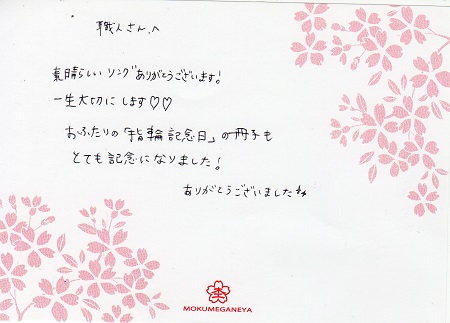 職人さんへ
素晴らしいリングありがとうございます!
一生大切にします♡♡
おふたりの「指輪記念日」の冊子も
とても記念になりました!
ありがとうございました
MOKUMEGANEYA